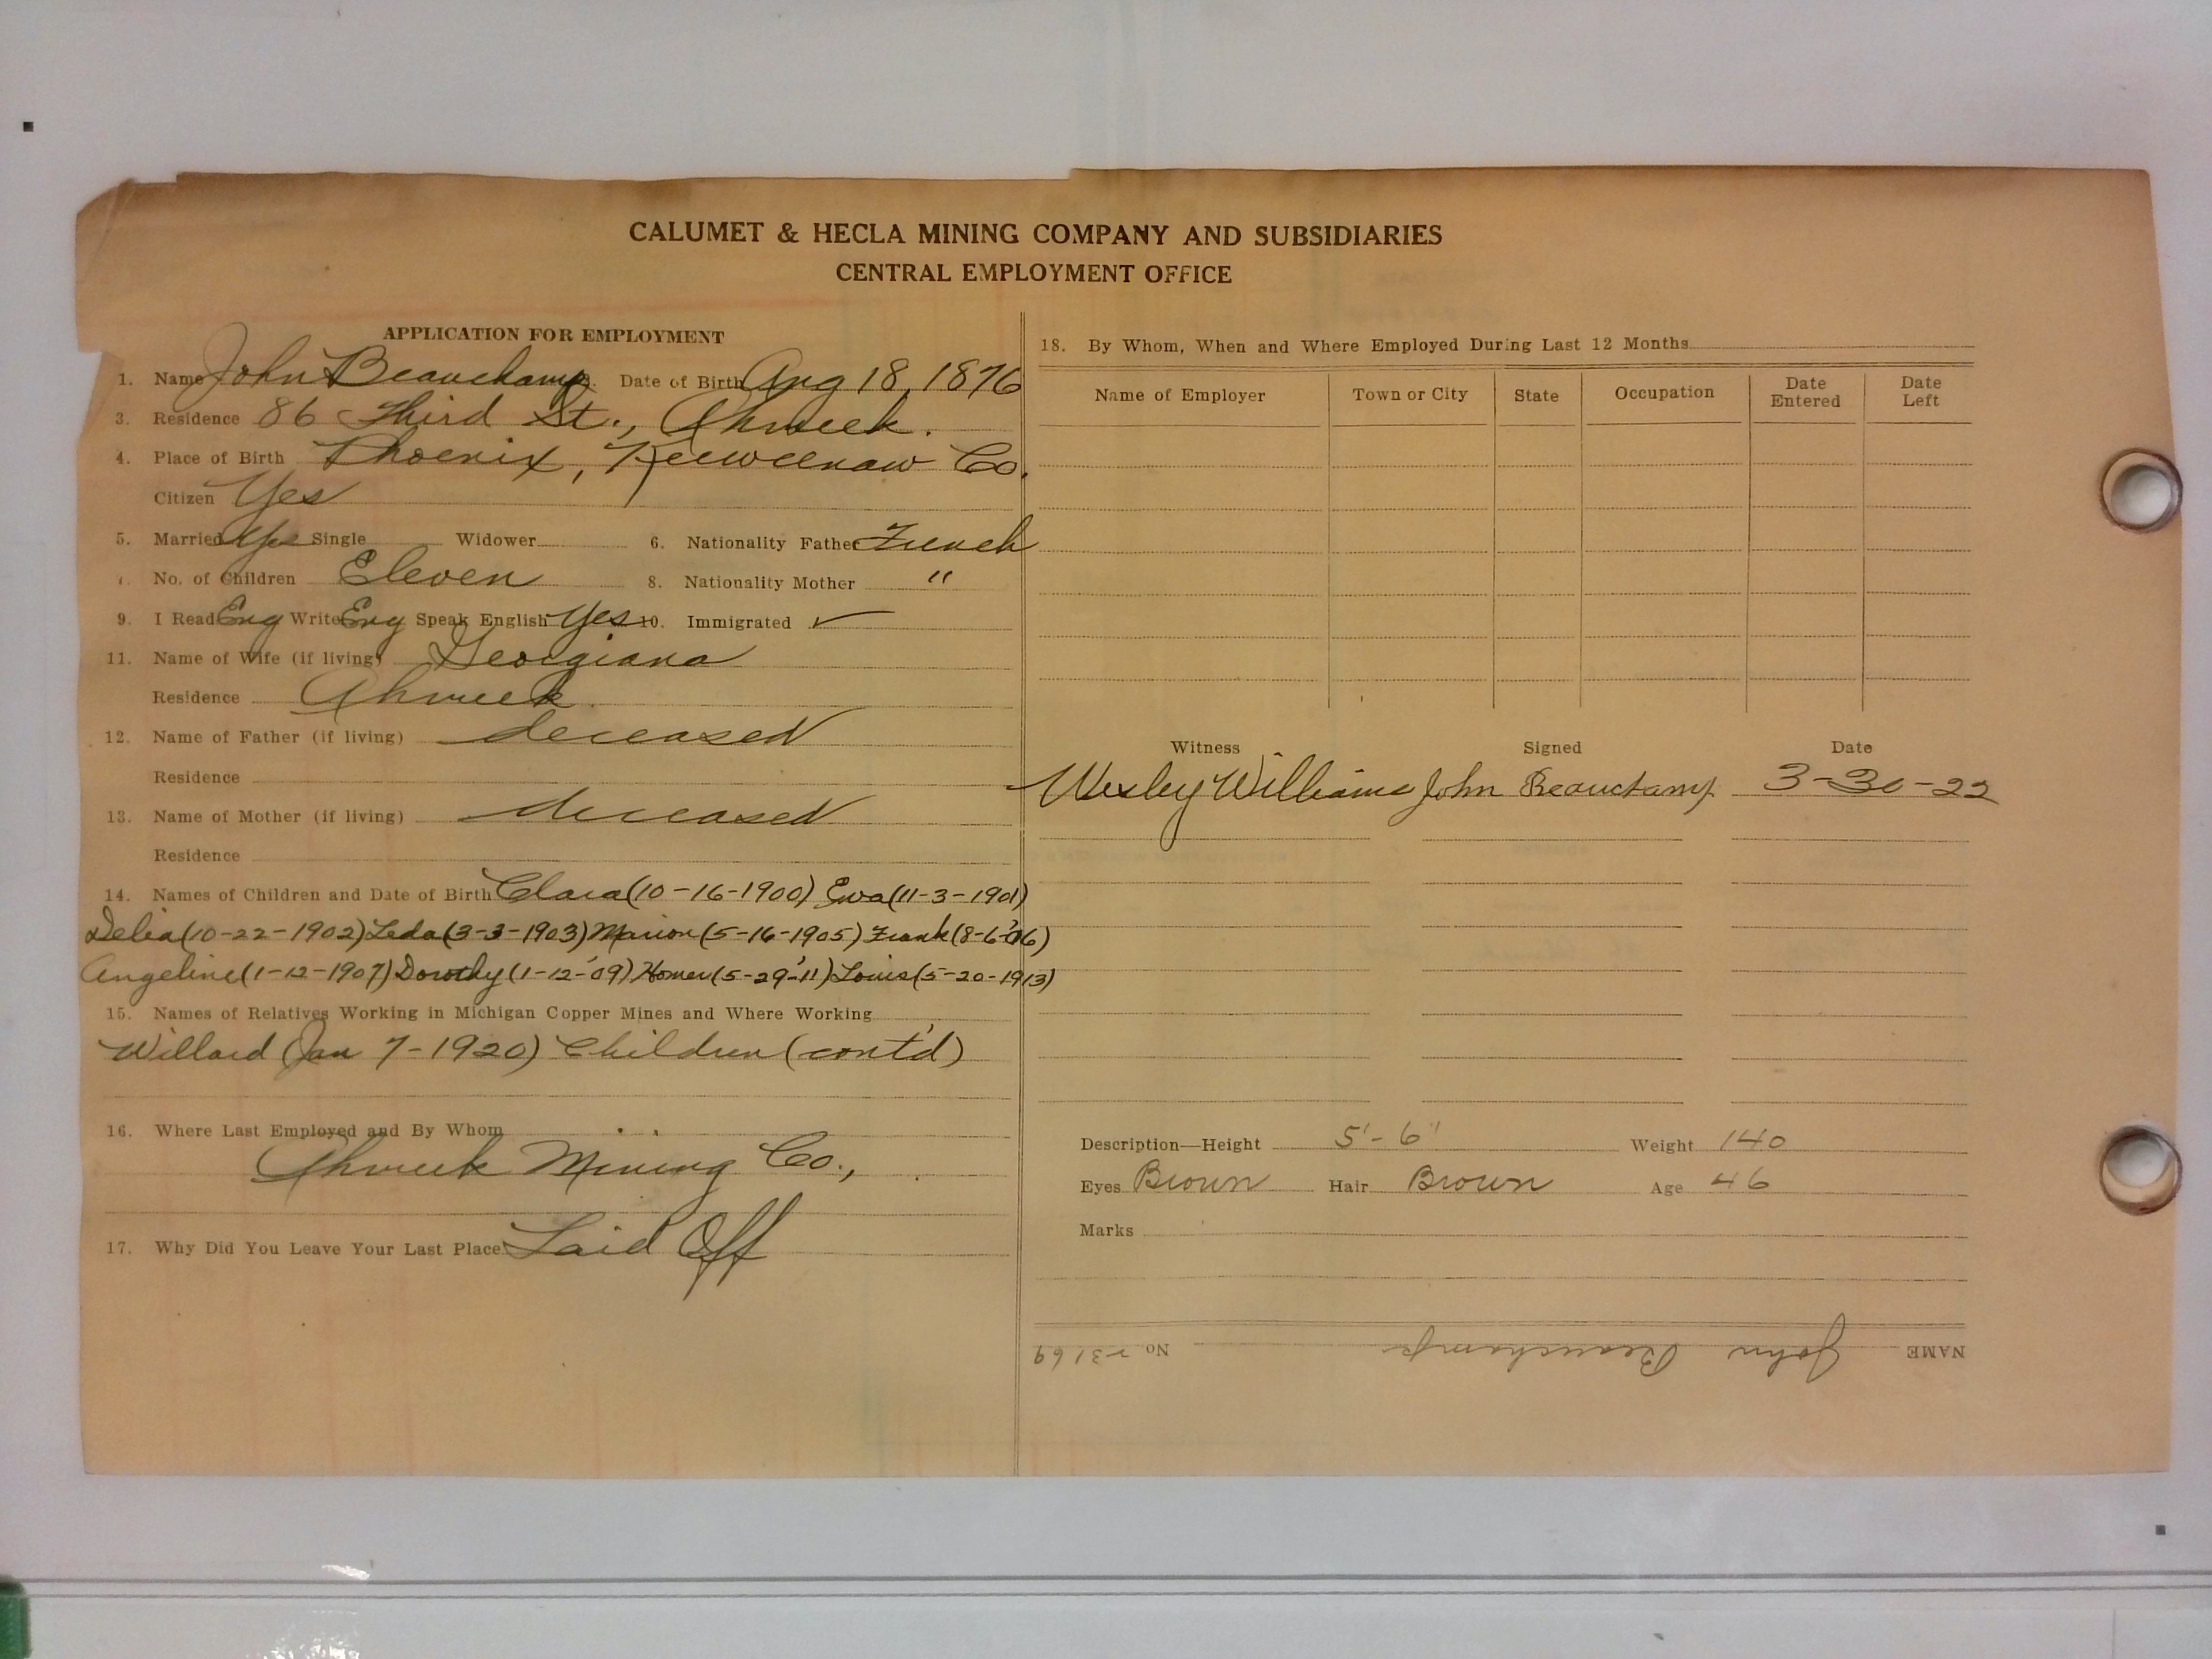 CALUMET & HECLA MINING COMPANY AND SUBSIDIARIES
CENTRAL EMPLOYMENT OFFICE
APPLICATION FOR EMPLOYMENT
1. Name John Beauchamp. Date of Birth Aug 18, 1876
3. Residence 86 Third St., Ahmeek.
4. Place of Birth Phoenix, Keweenaw Co.
Citizen Yes
5. Married Yes Single Widower 6. Nationality Father French
7. No. of Children Eleven 8. Nationality Mother "
9. I Read Eng Write Eng Speak English Yes 10. Immigrated ✓
11. Name of Wife (if living) Georgiana
Residence Ahmeek.
12. Name of Father (if living) deceased
Residence
13. Name of Mother (if living) deceased
Residence
14. Names of Children and Date of Birth Clara (10-16-1900) Eva (11-3-1901)
Delia (10-22-1902) Leda (3-3-1903) Marion (5-16-1905) Frank (8-6-'06)
Angeline (1-12-1907) Dorothy (1-12-'09) Homer (5-29-'11) Louis (5-20-1913)
15. Names of Relatives Working in Michigan Copper Mines and Where Working
Willard (Jan 7-1920) Children (cont'd)
16. Where Last Employed and By Whom
Ahmeek Mining Co.,
17. Why Did You Leave Your Last Place Laid Off
18. By Whom, When and Where Employed During Last 12 Months
Name of Employer Town or City State Occupation Date Entered Date Left
Witness Signed Date
Wesley Williams John Beauchamp 3-30-22
Description—Height 5'-6" Weight 140
Eyes Brown Hair Brown Age 46
Marks
NAME John Beauchamp No 23169